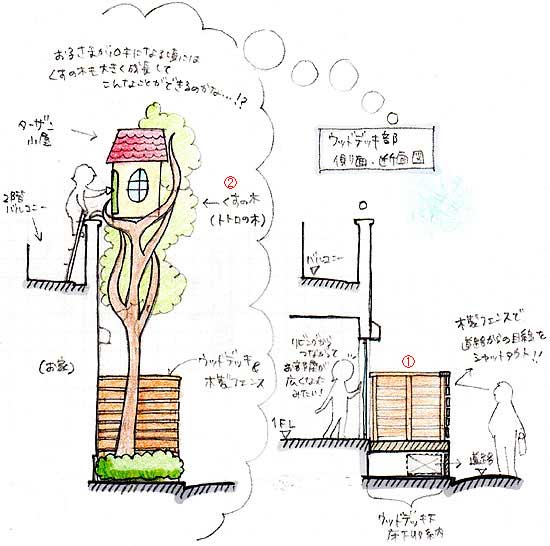 お子さまが10才になる頃には
くすの木も大きく成長して
こんなことができるのかな…!?
ターザン
小屋
2階
バルコニー
②
くすの木
(トトロの木)
(お家)
ウッドデッキ&
木製フェンス
ウッドデッキ部
側面・断面図
バルコニー
リビングから
つながって
お部屋が
広くなった
みたい!
木製フェンスで
道路からの目線を
シャットアウト!!
①
1FL
道路
ウッドデッキ下
床下収納